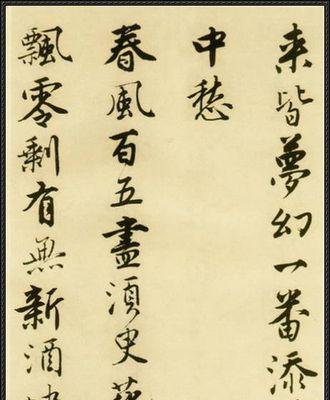 来皆夢幻一番添
中愁
春風百五盡湏臾
飄零剩有無新酒